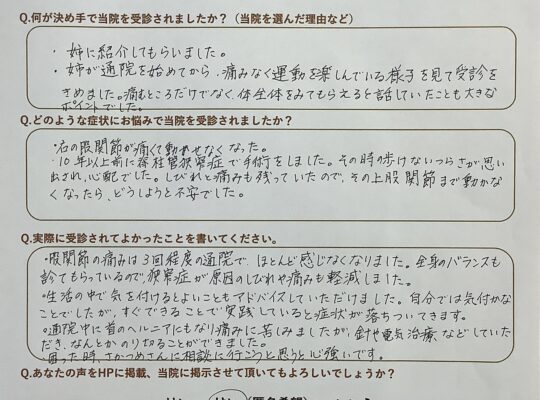 Q.何が決め手で当院を受診されましたか？（当院を選んだ理由など）
・姉に紹介してもらいました。
・姉が通院を始めてから、痛みなく運動を楽しんでいる様子を見て受診を
きめました。痛むところだけでなく、体全体をみてもらえると話していたことも大きな
ポイントでした。
Q.どのような症状にお悩みで当院を受診されましたか？
・右の股関節が痛くて動かせなくなった。
・10年以上前に脊柱管狭窄症で手術をしました。その時の歩けないつらさが思い
出され、心配でした。しびれと痛みも残っていたので、その上股関節まで動かな
くなったら、どうしようと不安でした。
Q.実際に受診されてよかったことを書いてください。
・股関節の痛みは3回程度の通院で、ほとんど感じなくなりました。全身のバランスも
診てもらっているので、狭窄症が原因のしびれや痛みも軽減しました。
・生活の中で気を付けるとよいこともアドバイスしていただけました。自分では気付かな
ことでしたが、すぐできることで実践していると症状が落ちついてきます。
・通院中に首のヘルニアにもなり痛みに苦しみましたが、針や電気治療などしていた
だき、なんとかのり切ることができました。
困った時、さかつめさんに相談に行こうと思うと心強いです。
Q.あなたの声をHPに掲載、当院に掲示させて頂いてもよろしいでしょうか？